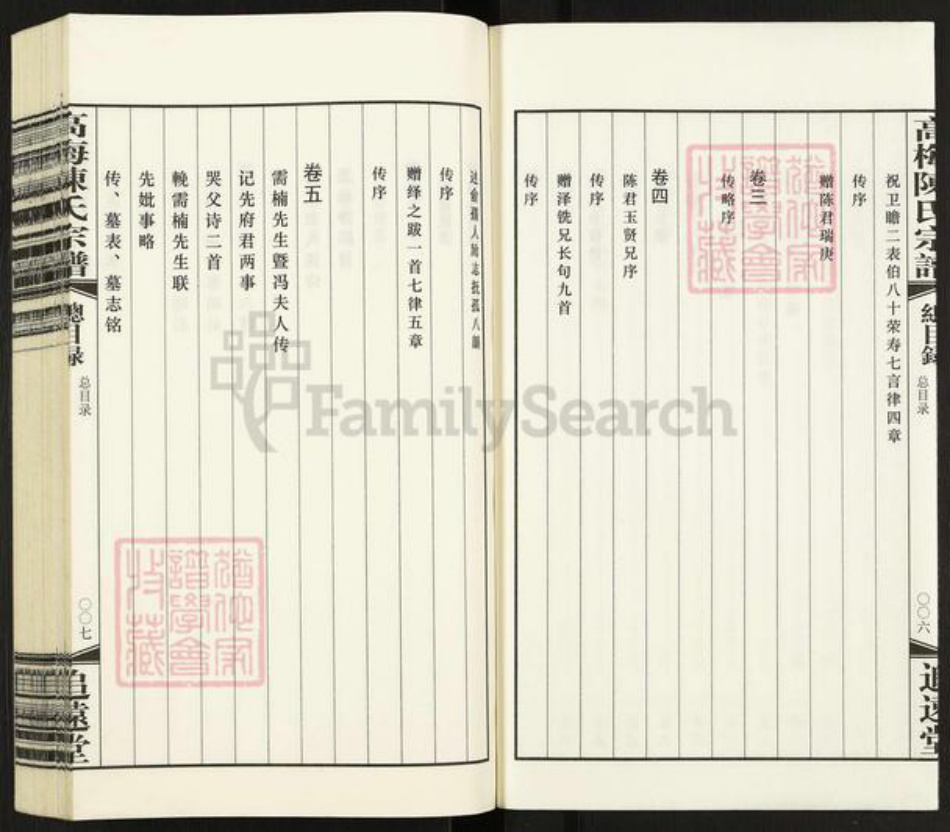 高梅陳氏宗譜
總目録
总目录
〇〇六
追遠堂
祝卫瞻二表伯八十荣寿七言律四章
传序
赠陈君瑞庚
卷三
传略序
卷四
陈君玉贤兄序
传序
赠泽铣兄长句九首
传序
传序
赠绎之跋一首七律五章
传序
卷五
需楠先生暨冯夫人传
记先府君两事
哭父诗二首
輓需楠先生联
先妣事略
传、墓表、墓志铭
高梅陳氏宗譜
總目録
总目录
〇〇七
追遠堂
FamilySearch